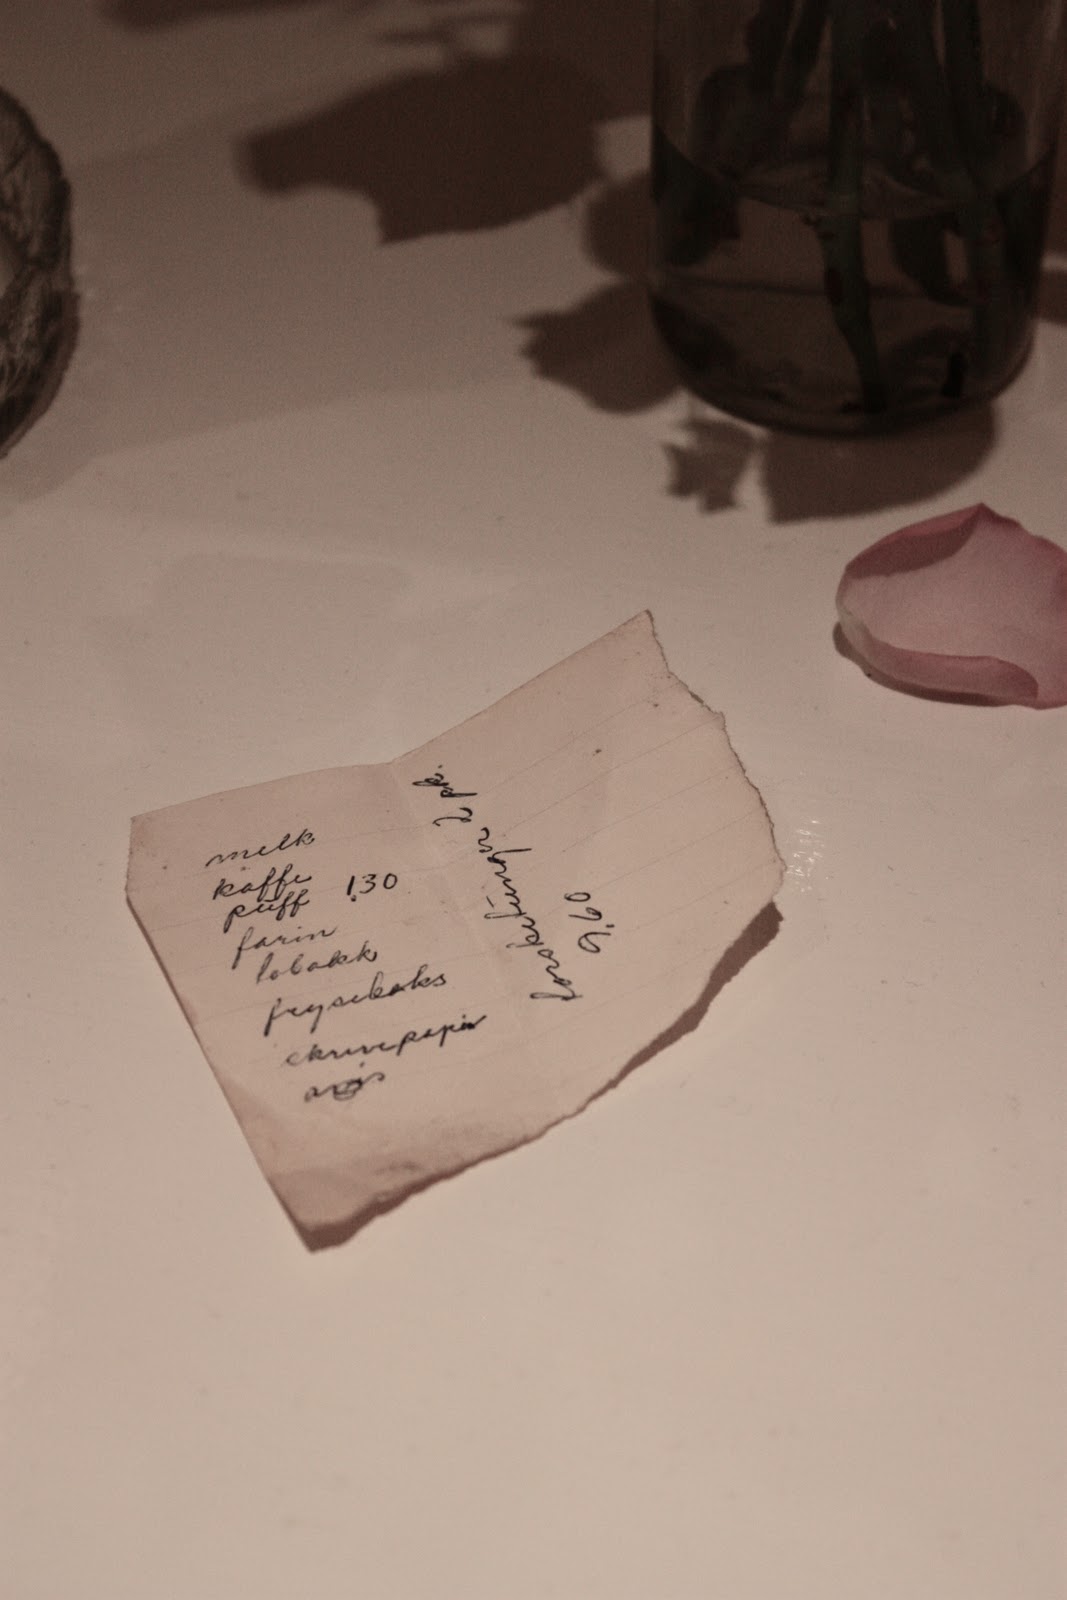 melk
kaffe
puff 1.30
farin
tobakk
fryseboks
skrivepapir
avis
2 pk.
9,60